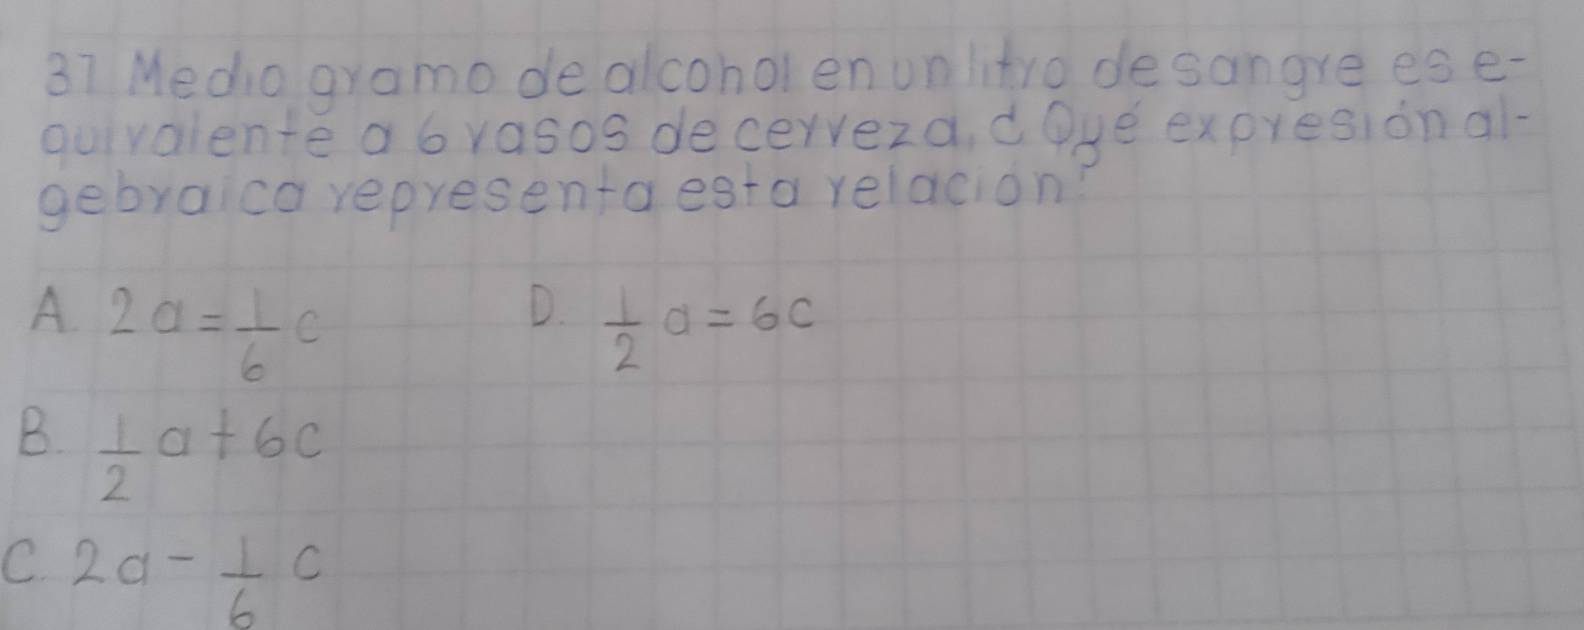 37 Medio gramo de alcohol en un litro de sangre es e-
quivalente a 6 vasos de cerveza, ¿Qué expresión al-
gebraica representa esta relación?
A. 2a = 1/6 c
D. 1/2 a = 6c
B. 1/2 a + 6c
C. 2a - 1/6 c